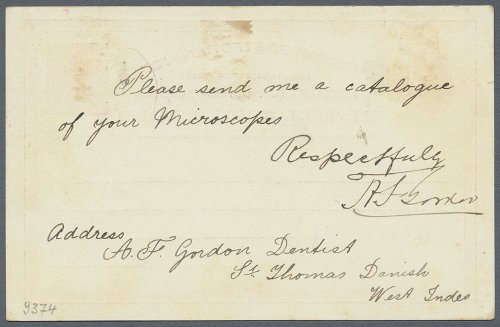 Please send me a catalogue
of your Microscopes
Respectfully
A F Gordon
Address
A. F. Gordon Dentist
St. Thomas Danish
West Indes
9374